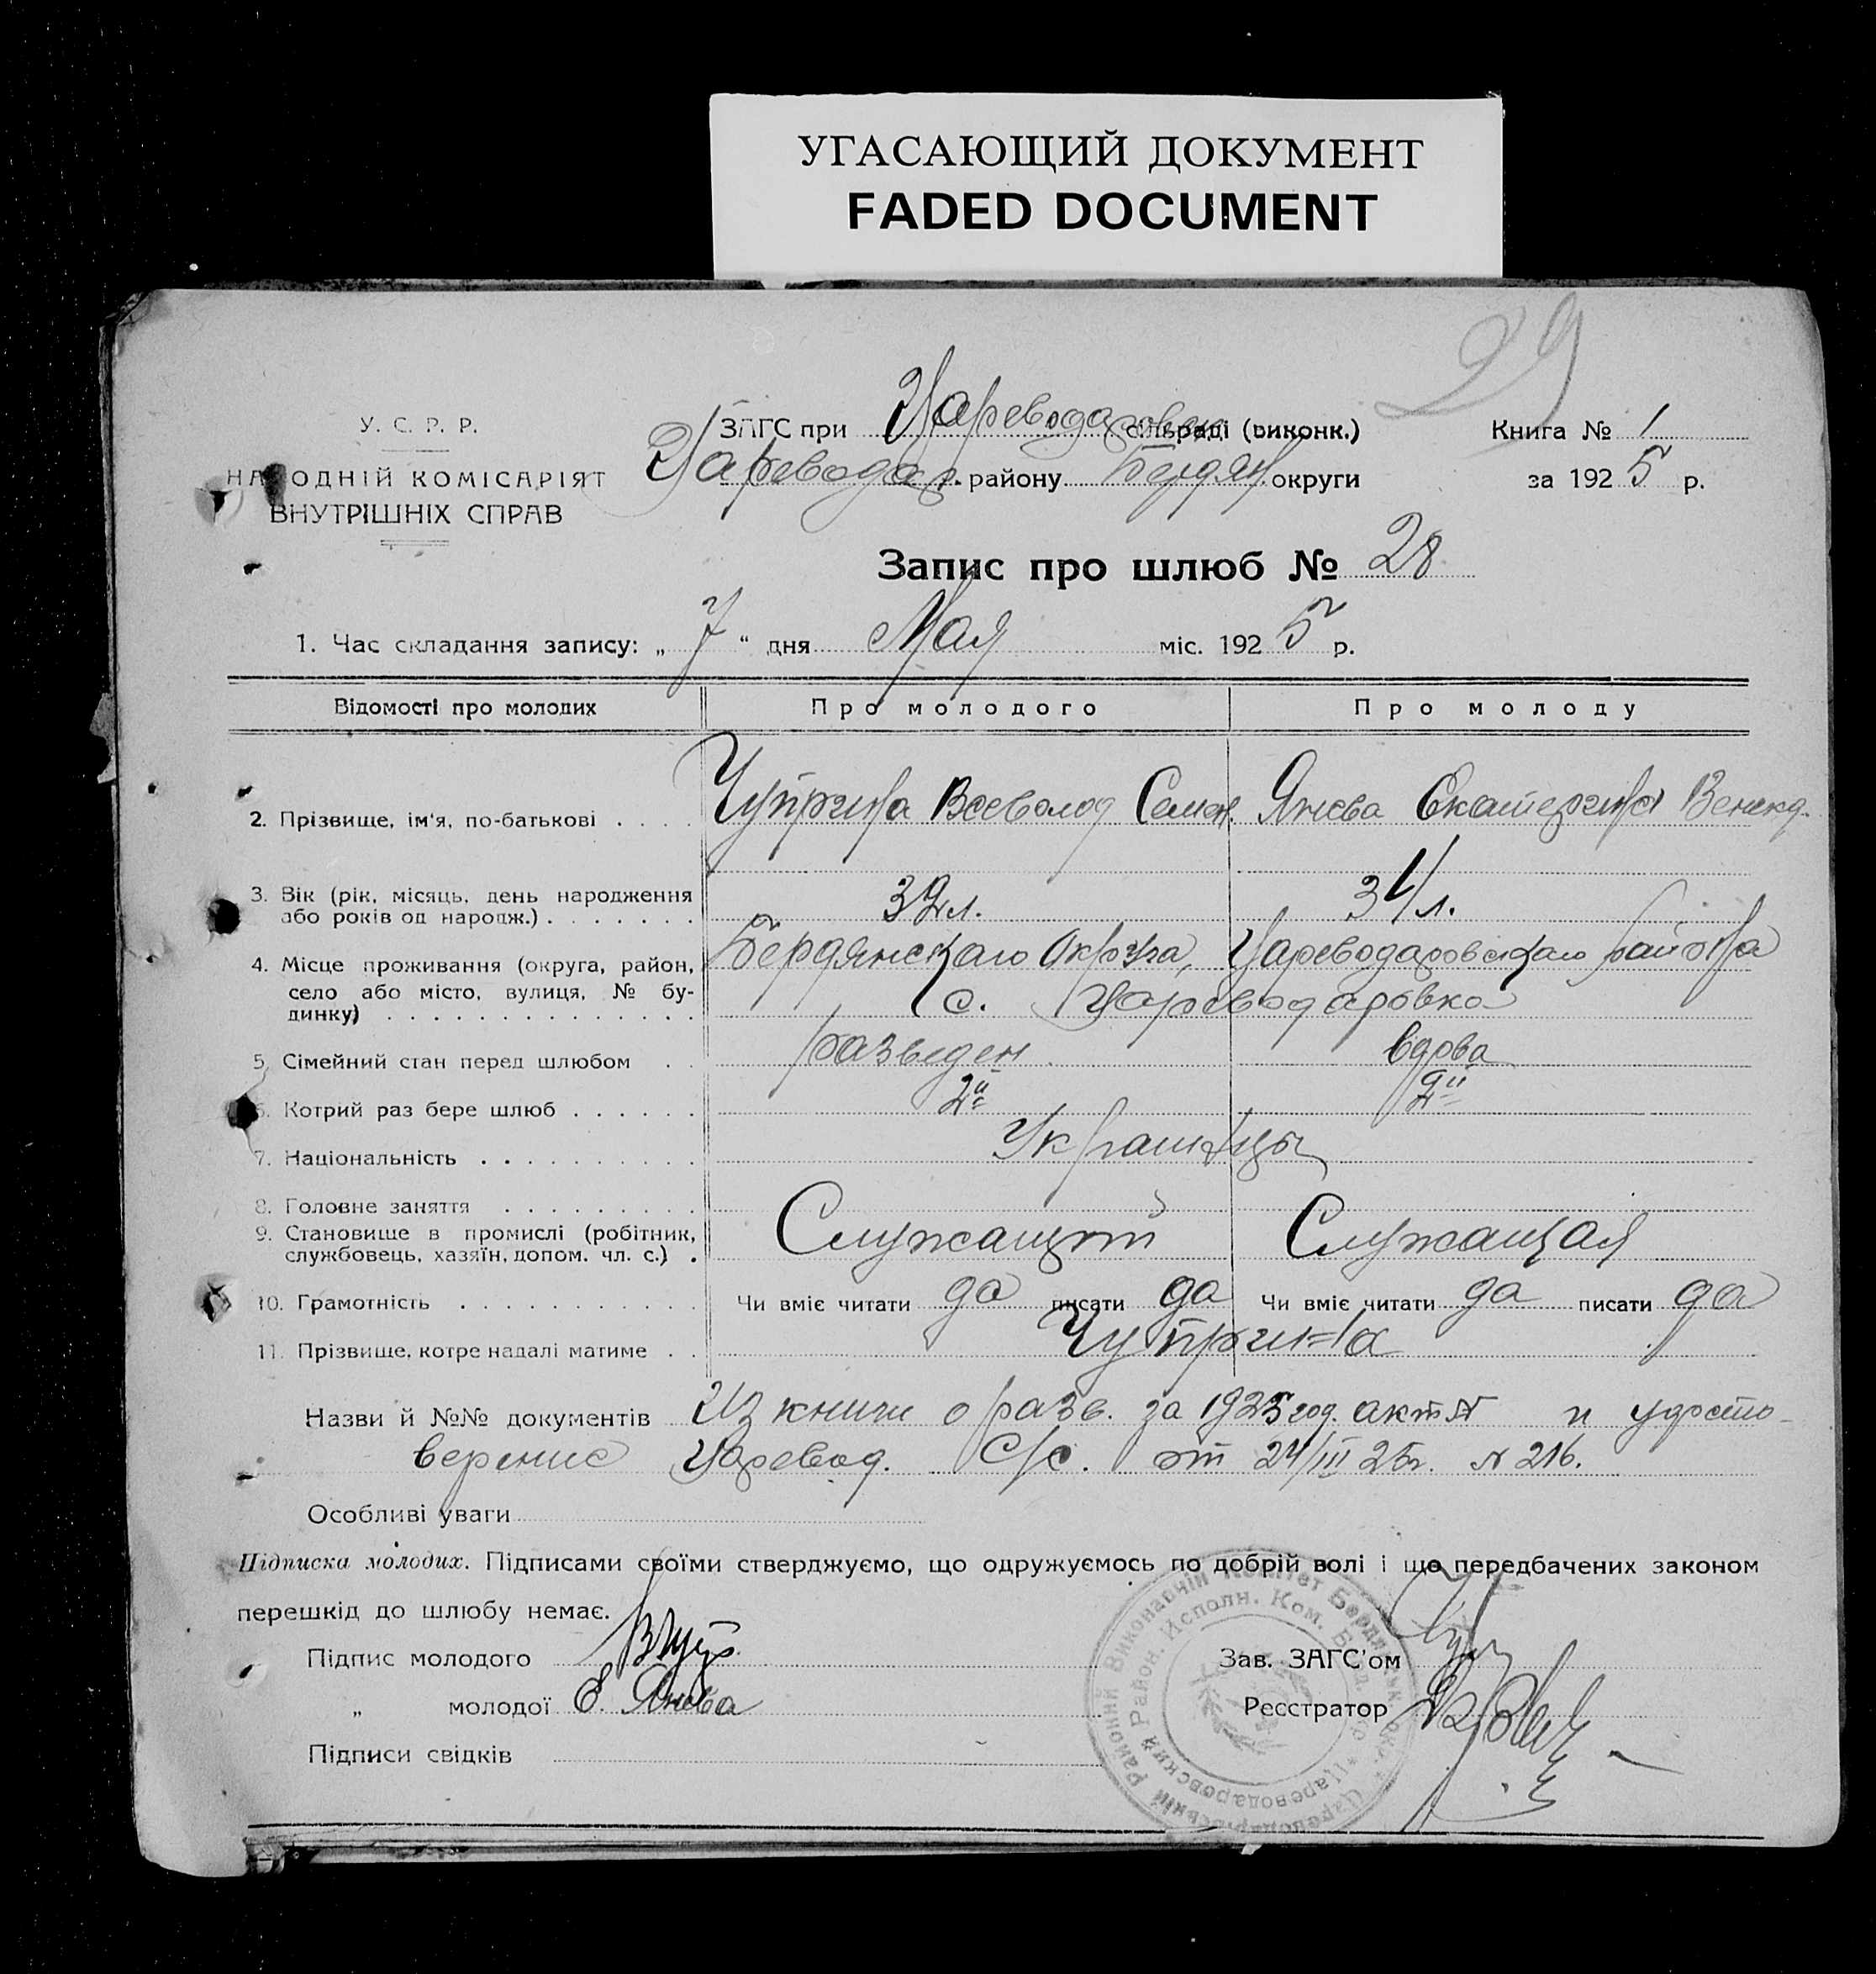 УГАСАЮЩИЙ ДОКУМЕНТ
FADED DOCUMENT
29
У. С. Р. Р.
НАРОДНІЙ КОМІСАРІЯТ
ВНУТРІШНІХ СПРАВ
ЗАГС при Цареводаровск. сільраді (виконк.)
Цареводар. району Бердян. округи
Книга № 1
за 1925 р.
Запис про шлюб № 28
1. Час складання запису: „ 7 “ дня Мая міс. 1925 р.
Відомості про молодих Про молодого Про молоду
2. Прізвище, ім'я, по-батькові Чуприна Всеволод Семен. Янева Екатерина
3. Вік (рік, місяць, день народження
або років од народж.) 32 л. 31 л.
4. Місце проживання (округа, район, Бердянскаго Округа, Цареводаровскаго района
село або місто, вулиця, № бу-
динку) с. Цареводаровка
5. Сімейний стан перед шлюбом разведен вдова
6. Котрий раз бере шлюб 2й 2й
7. Національність Украинцы
8. Головне заняття
9. Становище в промислі (робітник,
службовець, хазяїн, допом. чл. с.) Служащий Служащая
10. Грамотність Чи вміє читати да писати да Чи вміє читати да писати да
11. Прізвище, котре надалі матиме Чуприна
Назви й №№ документів Из книги о разв. за 1925 год. акт № и удосто-
верение Царевод. С/с. от 24/III 25г. № 216.
Особливі уваги
Підписка молодих. Підписами своїми стверджуємо, що одружуємось по добрій волі і що передбачених законом
перешкід до шлюбу немає.
Підпис молодого ВЧупр.
Зав. ЗАГС'ом
„ молодої Е. Янева
Реєстратор
Підписи свідків
Районний Виконавчий Комітет Бердянськ. окр. * Цареводарівський
Цареводаровский Район. Исполн. Ком. Берд. Окр. *